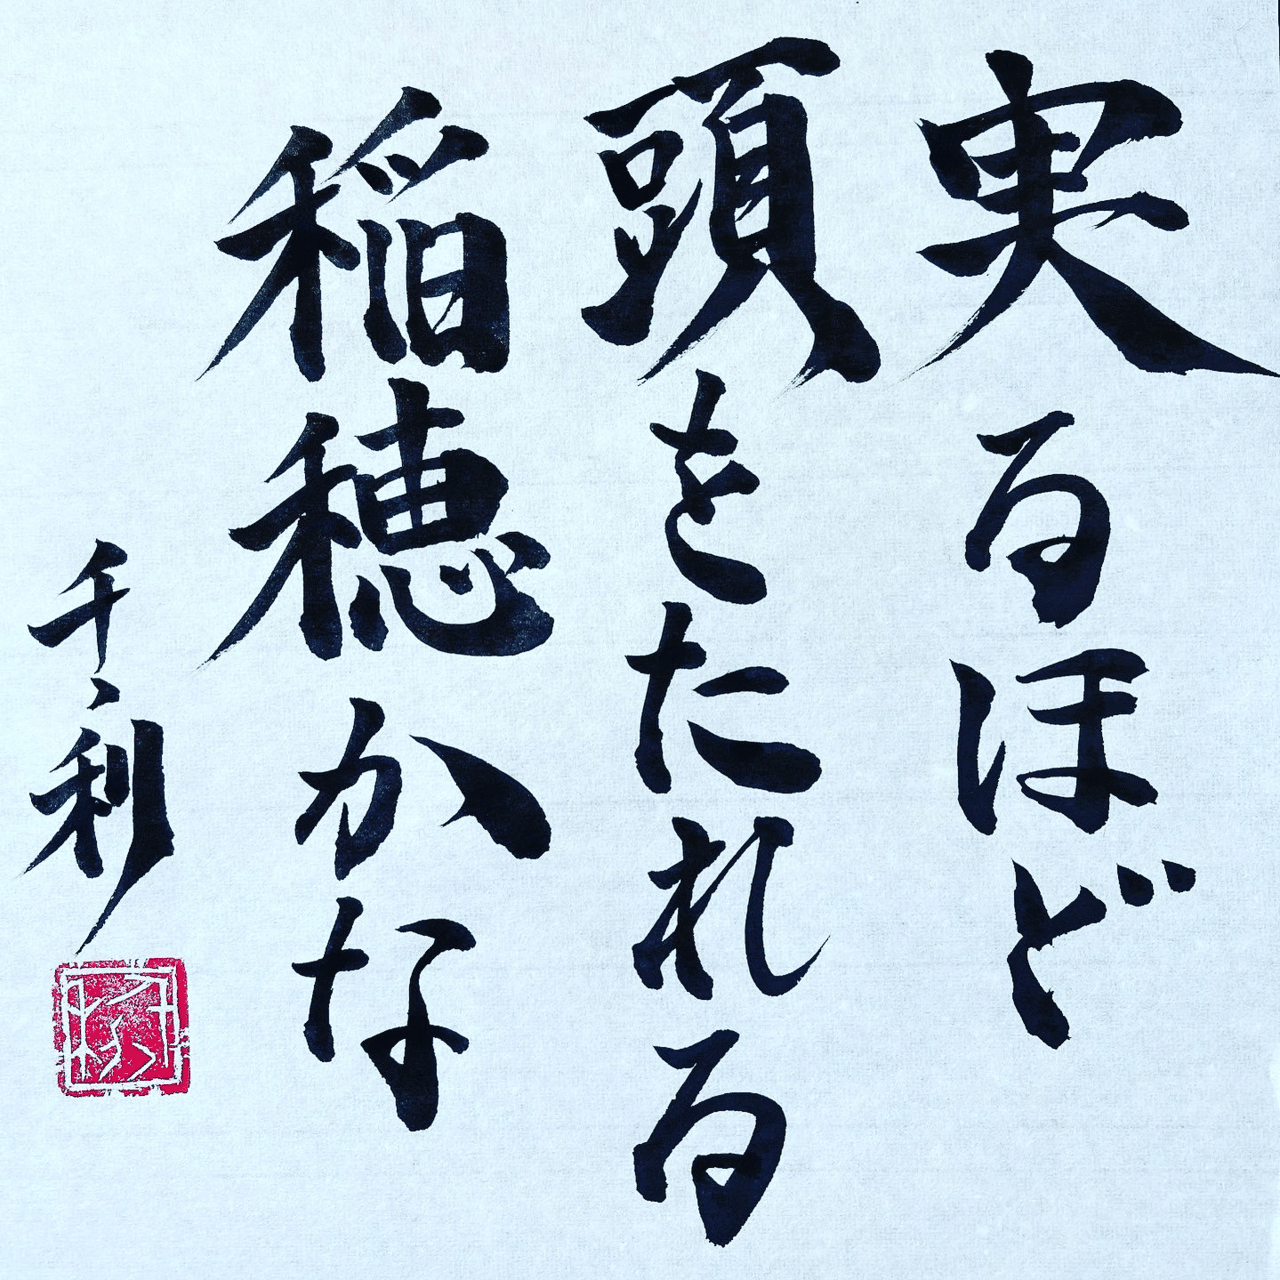 実るほど
頭をたれる
稲穂かな
千利